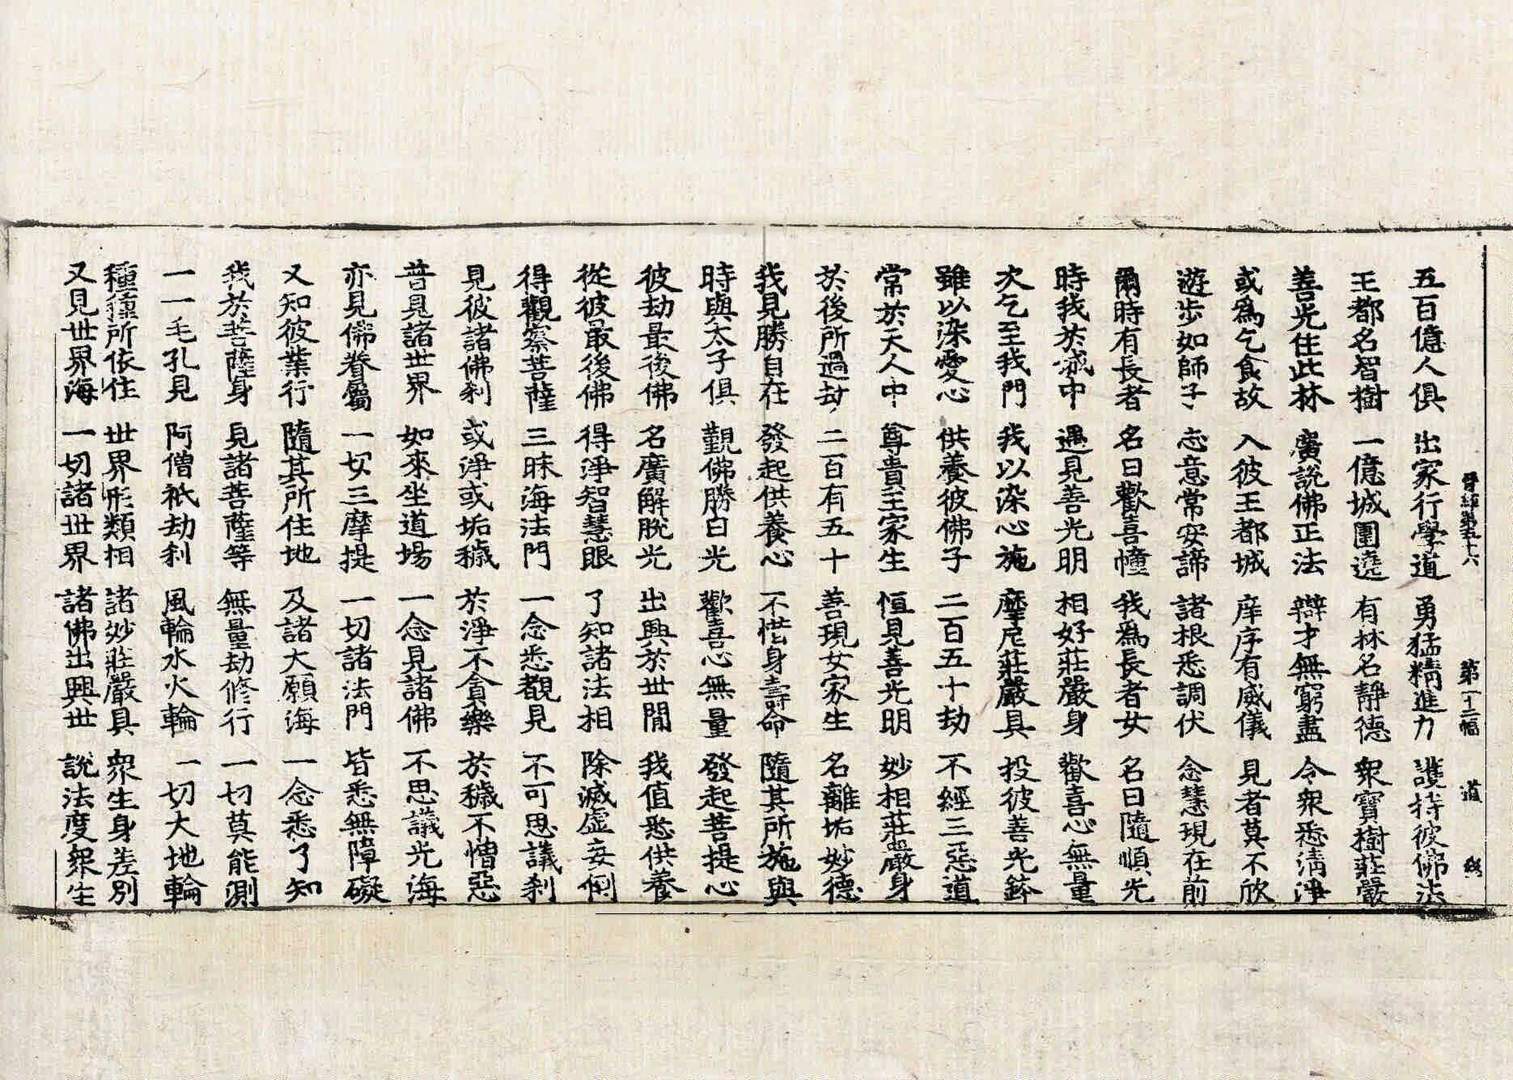 晉經第五十六　第十二幅　道
五百億人俱　出家行學道　勇猛精進力　護持彼佛法
王都名智樹　一億城圍遶　有林名靜德　衆寶樹莊嚴
善光住此林　廣說佛正法　辯才無窮盡　令衆悉淸淨
或爲乞食故　入彼王都城　庠序有威儀　見者莫不欣
遊步如師子　志意常安諦　諸根悉調伏　念慧現在前
爾時有長者　名曰歡喜幢　我爲長者女　名曰隨順光
時我於城中　遇見善光明　相好莊嚴身　歡喜心無量
次乞至我門　我以染心施　摩尼莊嚴具　投彼善光鉢
雖以染愛心　供養彼佛子　二百五十劫　不經三惡道
常於天人中　尊貴王家生　恒見善光明　妙相莊嚴身
於後所過劫　二百有五十　善現女家生　名離垢妙德
我見勝自在　發起供養心　不惜身壽命　隨其所施與
時與太子俱　觀佛勝日光　歡喜心無量　發起菩提心
彼劫最後佛　名廣解脫光　出興於世間　我值悉供養
從彼最後佛　得淨智慧眼　了知諸法相　除滅虛妄倒
得觀察菩薩　三昧海法門　一念悉覩見　不可思議刹
見彼諸佛刹　或淨或垢穢　於淨不貪樂　於穢不憎惡
普見諸世界　如來坐道場　一念見諸佛　不思議光海
亦見佛眷屬　一切三摩提　一切諸法門　皆悉無障礙
又知彼業行　隨其所住地　及諸大願海　一念悉了知
我於菩薩身　見諸菩薩等　無量劫修行　一切莫能測
一一毛孔見　阿僧祇劫刹　風輪水火輪　一切大地輪
種種所依住　世界形類相　諸妙莊嚴具　衆生身差別
又見世界海　一切諸世界　諸佛出興世　說法度衆生